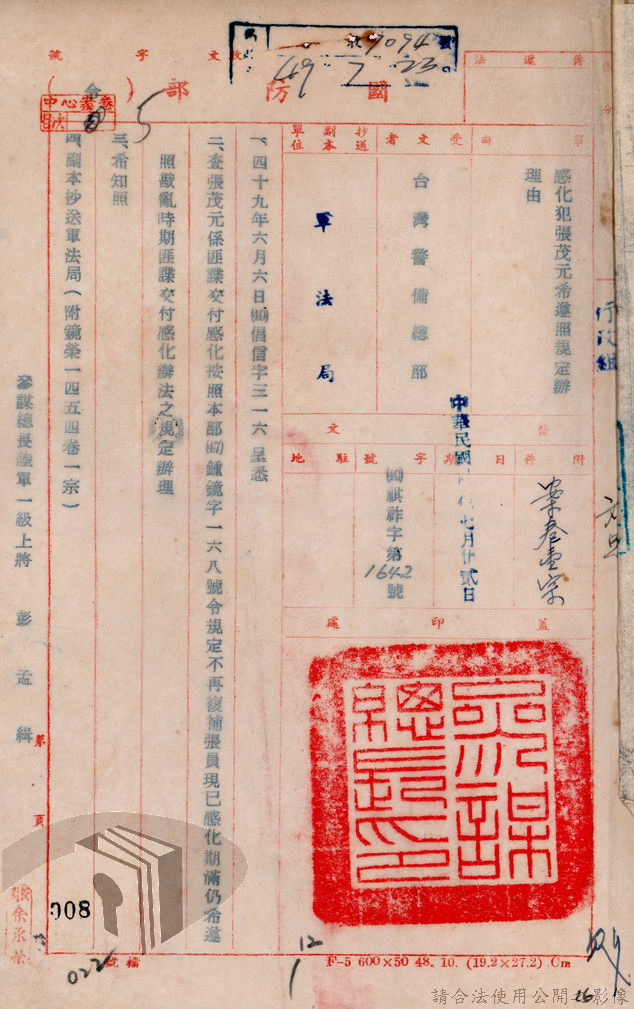 收文字號
收 7094 號
49 7 23
國防部（令）
卷案心中
目次
5
事由
感化犯張茂元希遵照規定辦理由
受文者
台灣警備總部
抄送副本單位
軍法局
行政組
發文
附件
案卷壹宗
日期
中華民國 年七月廿貳日
字號
(49)祺祚字第1642號
駐地
蓋印處
參謀總長印
一、四十九年六月六日(49)倡信字三一六呈悉
二、查張茂元係匪諜交付感化按照本部(47)鍾鏡字一六八號令規定不再復補張員現已感化期滿仍希遵
照戡亂時期匪諜交付感化辦法之規定辦理
三、希知照
四、副本抄送軍法局（附鏡榮一四五四卷一宗）
參謀總長陸軍一級上將 彭孟緝
第 頁
008
022
檔號
12
1
F-5 600×50 48. 10. (19.2×27.2) Cm
26
請合法使用公開之影像